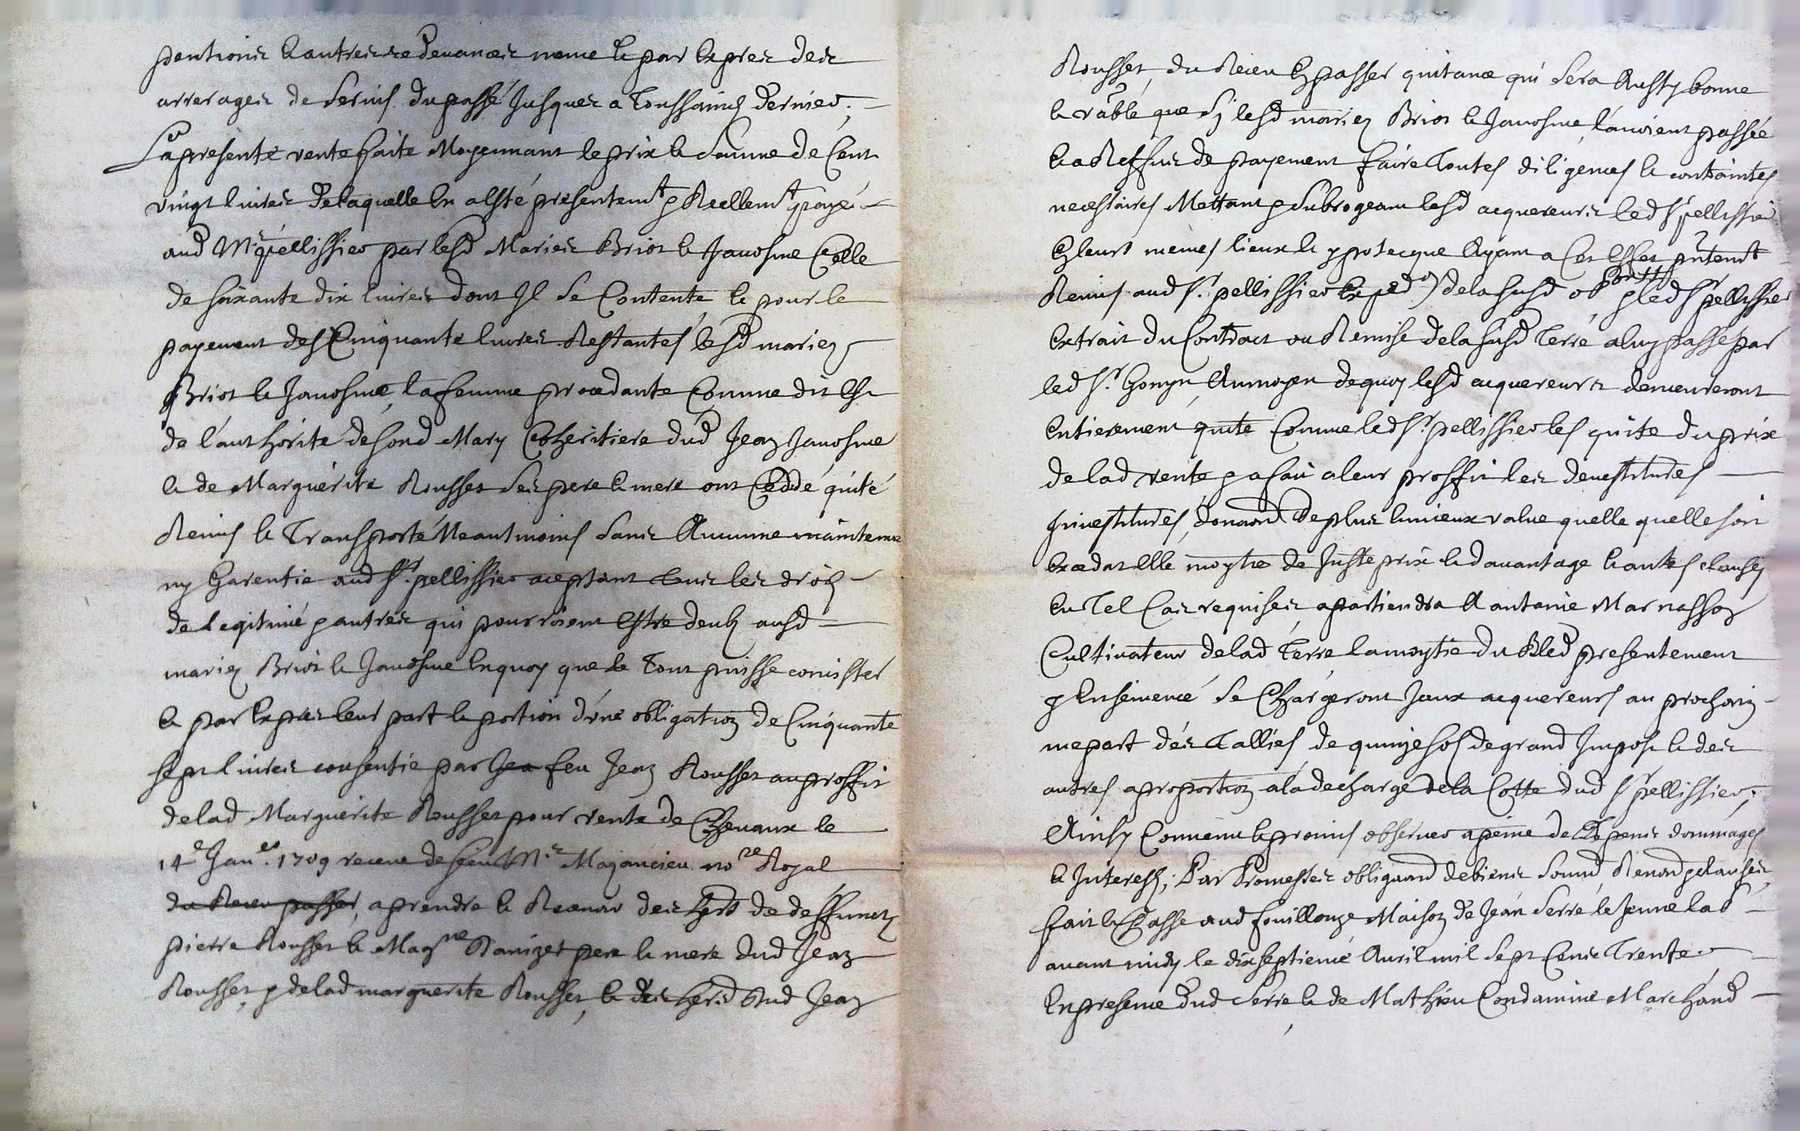 pentions & autres redevances meme & par exprez des
arrerages de servis du passé jusques a Toussaincts dernier.
La presente vente faite Moyennant le prix & somme de Cent
vingt livres de laquelle en a esté presentemt & Reellemt payé
aud Mre pellissier par lesd Mariez Brior & Janosme Celle
de soixante dix livres dont Il se Contente, & pour le
payement des Cinquante livres Restantes lesd mariez
Brior & Janosme, la femme procedante Comme dit est
de l'authorité de sond Mary Coheritiere dud Jean Janosme
& de Marguerite Rousset ses pere & mere ont Ceddé quité
Remis & Transporté Neantmoins sans Aucune maintenue
ny Garentie aud sr. pellissier aceptant tous les droits
de legitime & autres qui pourroient estre deubs ausd
mariez Brior & Janosme en quoy que le Tout puisse consister
& par Exprez leur part & portion d'une obligation de Cinquante
sept livres consentie par Jea feu Jean Rousset au proffit
de lad Marguerite Rousset pour vente de Chevaux le
14e Janer. 1709 receue de feu Mre Majancieu nore Royal
du Receu passer, a prendre & Recevoir des hers de deffuncts
pierre Rousset & Magne pere & mere dud Jean
Rousset, & de lad marguerite Rousset, & des hers dud Jean
Rousset, du Receu En passer quitance qui sera Aussy bonne
& vable que sy lesd mariez Brior & Janosme l'avoient passée
& a Reffus de payement faire Toutes diligences & contraintes
necessaires Mettant & subrogeant lesd acquereurs led sr pellissier
En leurs mêmes lieux & ypotecque Ayant a Cet effet pntemt
Remis aud sr. pellissier de la susd & led sr pellissier
Extrait du Contract ou Remise de la susd Terre a luy passé par
led sr. Gonyn, Au moyen de quoy lesd acquereurs demeureront
Entierement quite Comme led sr. pellissier les quite du prix
de lad vente & a fait a leur proffit les devestitures
Investitures, donaon de plus & mieux value quelle quelle soit
Excedat Elle moytie de Juste prix & davantage & autres clauses
En Tel Cas requises apartiendra A antoine Marnassoz
Cultivateur de lad Terre la moytie du Bled presentement
y Ensemencé se Chargeront Iceux acquereurs au prochain
mepart des Tallies de quinze sols de grand Impost & des
autres a proportion a la decharge de la Cotte dud sr pellissier,
Ainsy Convenu & promis observer a peine de Depens dommages
& Interests, Par Promesses obligaons de biens soumons Renonons & clauses,
fait & Passé aud fouillouze Maison de Jean Serre le Jeune lad
avant midy le dix septieme Avril mil sept Cens Trente.
En presence dud Serre & de Mathieu Condamine Marchand